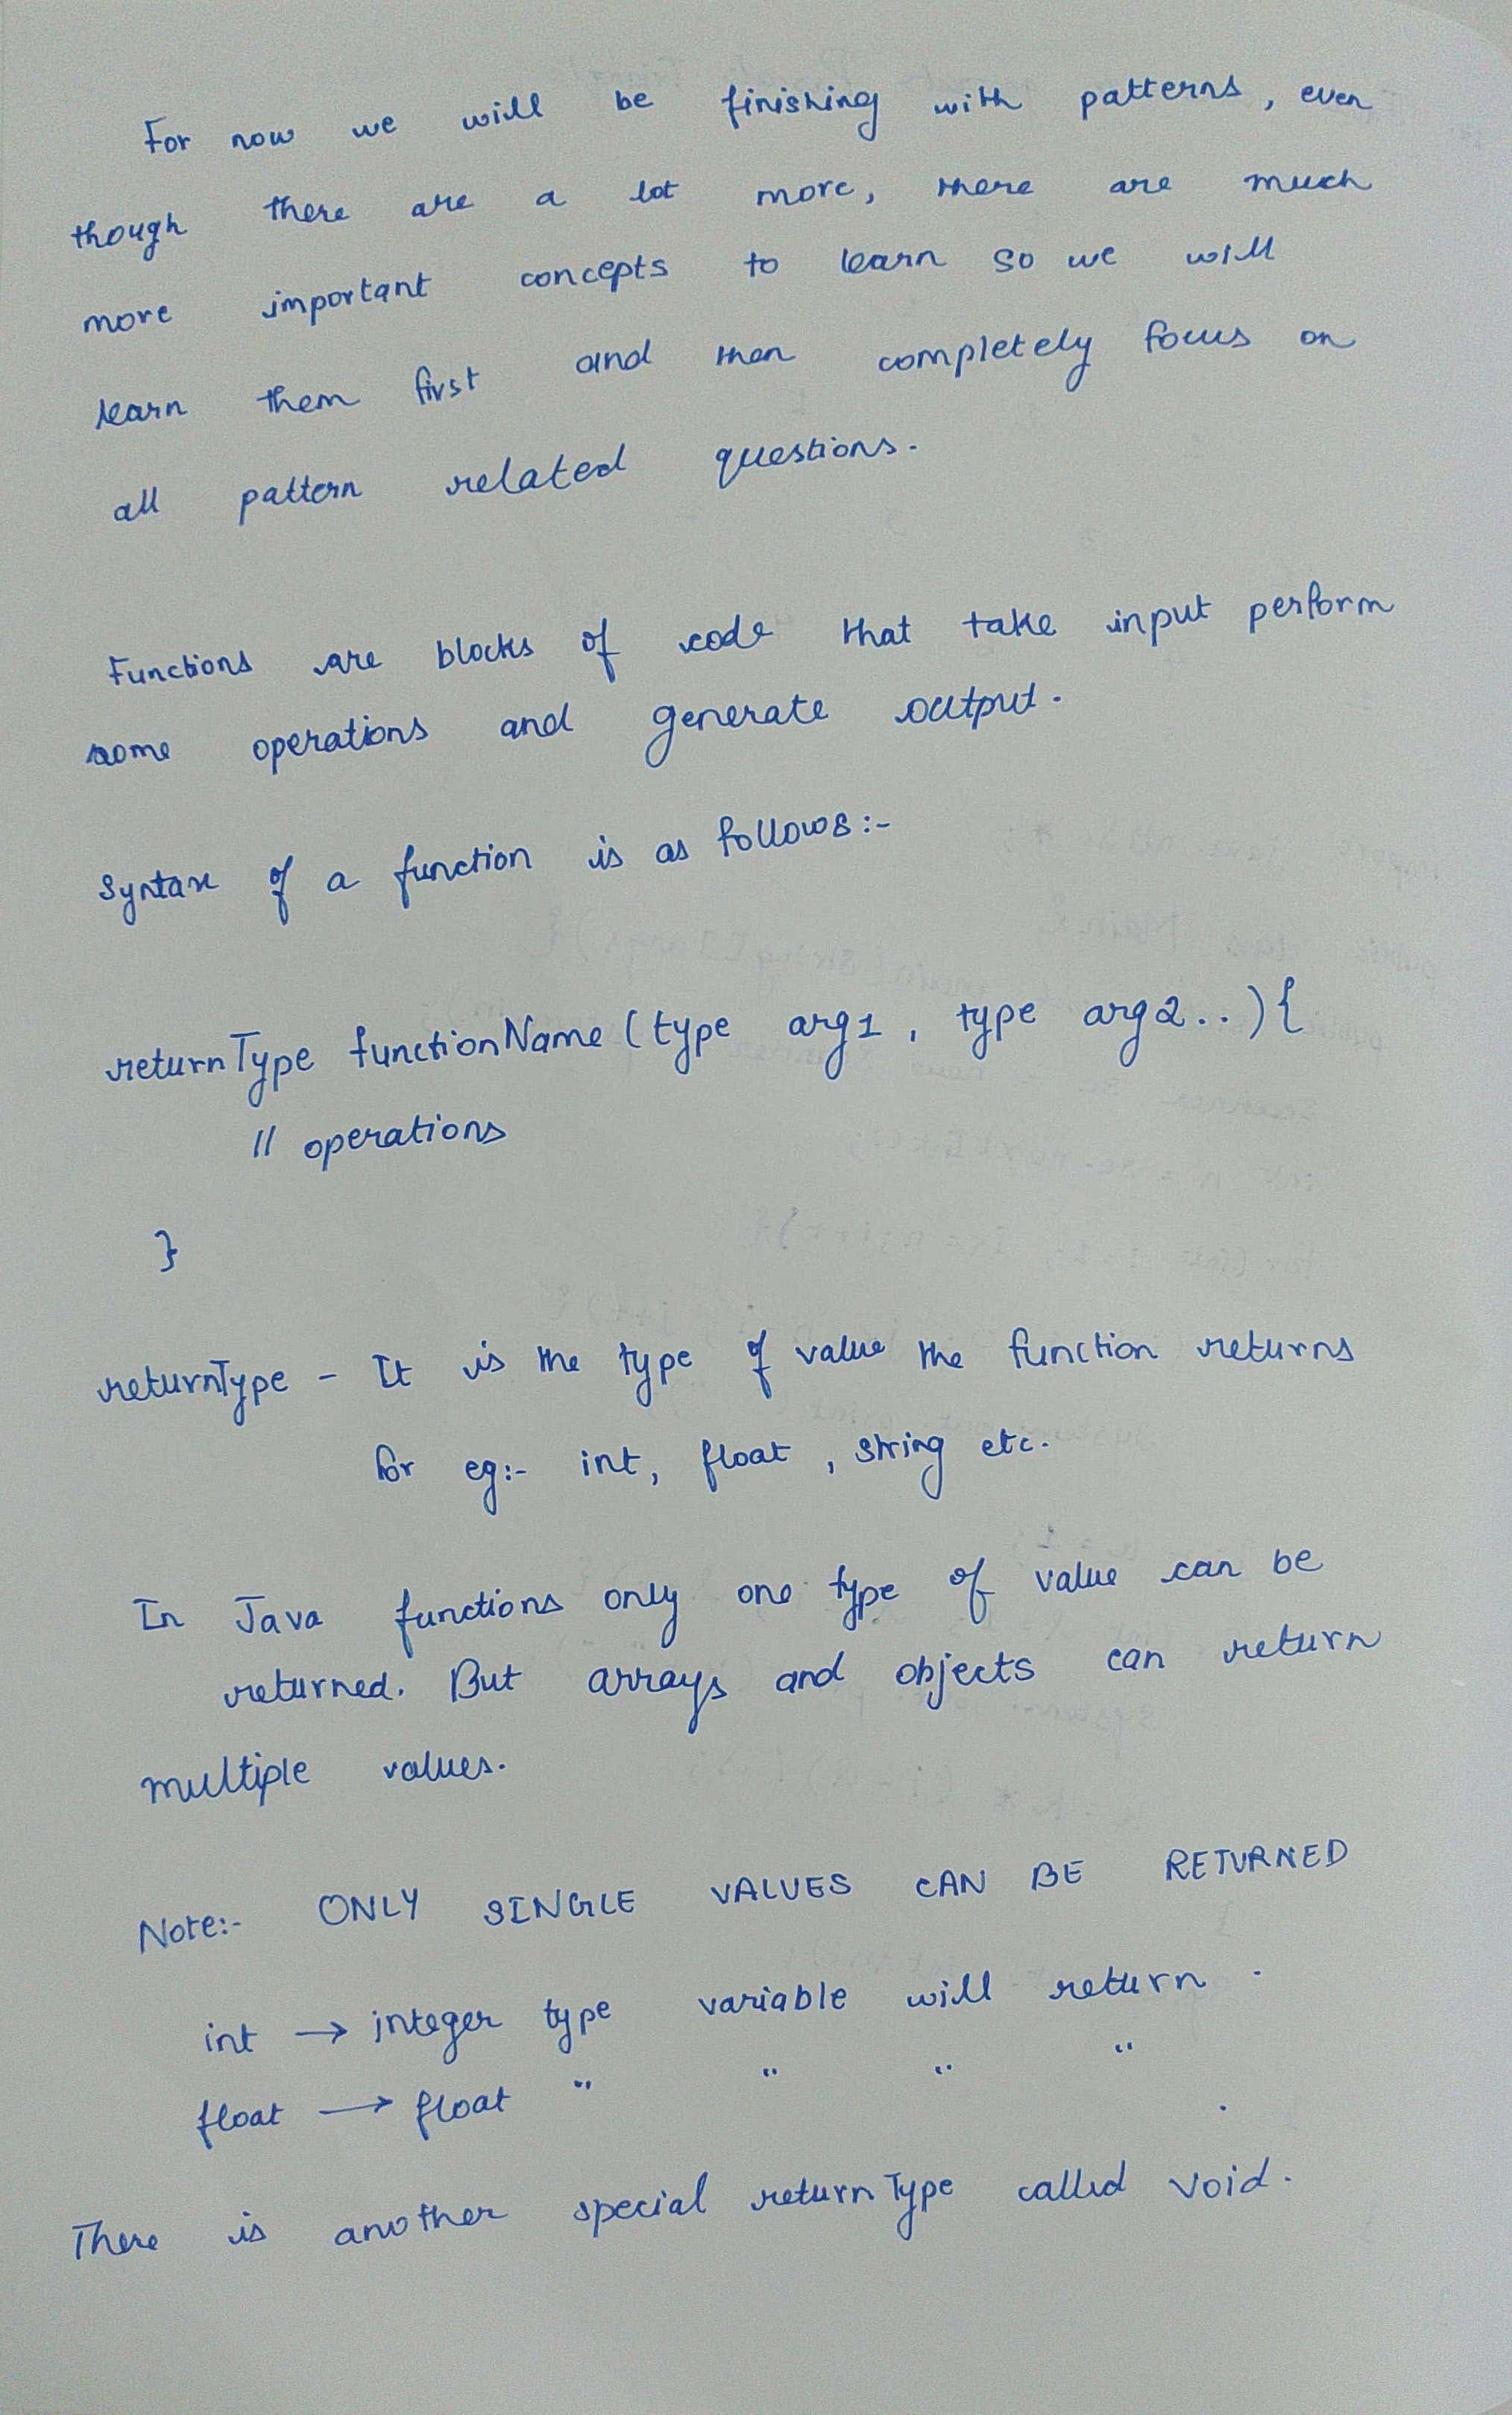 For now we will be finishing with patterns, even
though there are a lot more, there are much
more important concepts to learn so we will
learn them first and then completely focus on
all pattern related questions.
Functions are blocks of code that take input perform
some operations and generate output.
Syntax of a function is as follows:-
returnType functionName (type arg1, type arg2..){
// operations
}
returnType - It is the type of value the function returns
for eg:- int, float, string etc.
In Java functions only one type of value can be
returned. But arrays and objects can return
multiple values.
Note:- ONLY SINGLE VALUES CAN BE RETURNED
int → integer type variable will return.
float → float " " " " .
There is another special returnType called void.